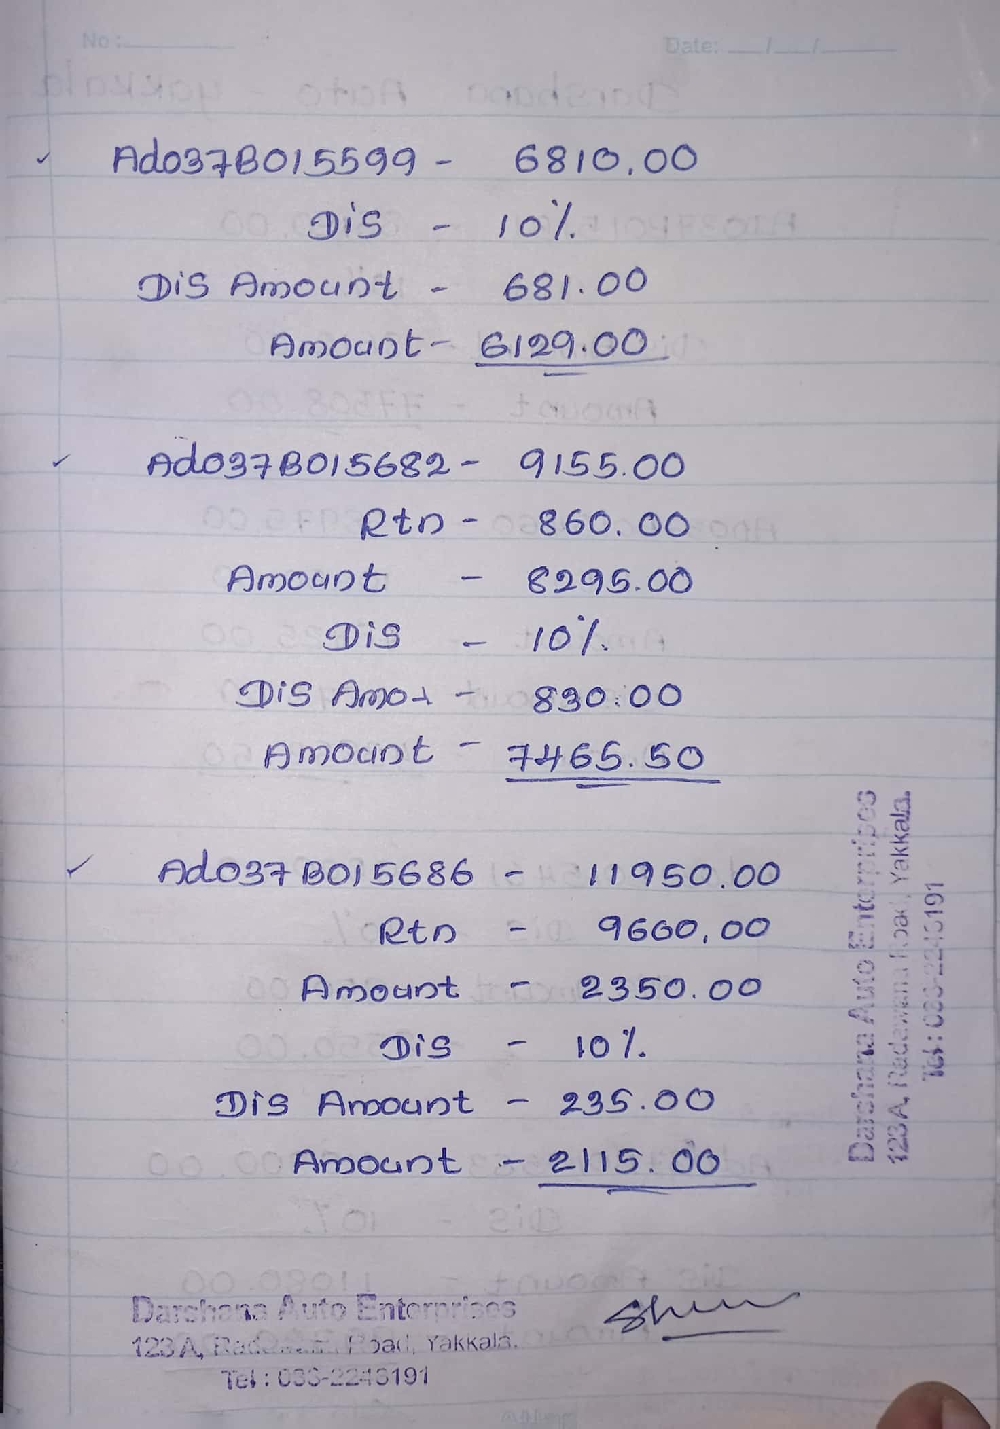 No:
Date: __/__/____
Ad037B015599 - 6810.00
Dis - 10%
Dis Amount - 681.00
Amount - 6129.00
Ad037B015682 - 9155.00
Rtn - 860.00
Amount - 8295.00
Dis - 10%
Dis Amo - 830.00
Amount - 7465.50
Ad037B015686 - 11950.00
Rtn - 9600.00
Amount - 2350.00
Dis - 10%
Dis Amount - 235.00
Amount - 2115.00
Darshana Auto Enterprises
123A, Radawana Road, Yakkala.
Tel : 033-2243191
Darshana Auto Enterprises
123A, Road, Yakkala.
Tel : 033-2243191